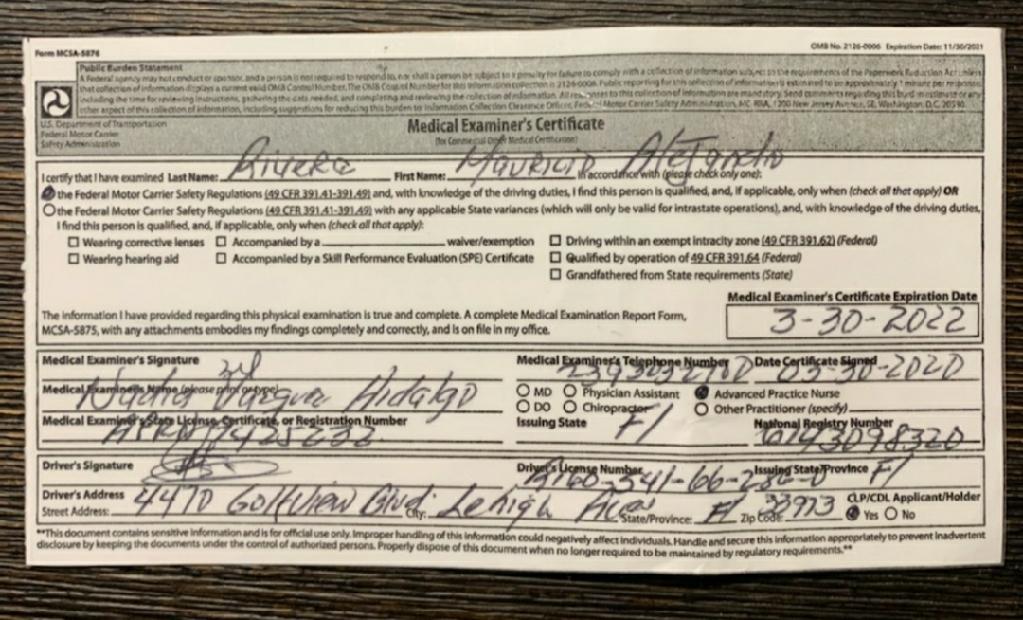 Form MCSA-5876 OMB No. 2126-0006 Expiration Date: 11/30/2021
Public Burden Statement
A Federal agency may not conduct or sponsor, and a person is not required to respond to, nor shall a person be subject to a penalty for failure to comply with a collection of information subject to the requirements of the Paperwork Reduction Act unless
that collection of information displays a current valid OMB Control Number. The OMB Control Number for this information collection is 2126-0006. Public reporting for this collection of information is estimated to be approximately 1 minute per response,
including the time for reviewing instructions, gathering the data needed, and completing and reviewing the collection of information. All responses to this collection of information are mandatory. Send comments regarding this burden estimate or any
other aspect of this collection of information, including suggestions for reducing this burden to: Information Collection Clearance Officer, Federal Motor Carrier Safety Administration, MC-RRA, 1200 New Jersey Avenue, SE, Washington, D.C. 20590.
U.S. Department of Transportation
Federal Motor Carrier
Safety Administration
Medical Examiner's Certificate
(for Commercial Driver Medical Certification)
I certify that I have examined Last Name: Rivera First Name: Mauricio Alejandro in accordance with (please check only one):
the Federal Motor Carrier Safety Regulations (49 CFR 391.41-391.49) and, with knowledge of the driving duties, I find this person is qualified, and, if applicable, only when (check all that apply) OR
the Federal Motor Carrier Safety Regulations (49 CFR 391.41-391.49) with any applicable State variances (which will only be valid for intrastate operations), and, with knowledge of the driving duties,
I find this person is qualified, and, if applicable, only when (check all that apply):
Wearing corrective lenses Accompanied by a waiver/exemption Driving within an exempt intracity zone (49 CFR 391.62) (Federal)
Wearing hearing aid Accompanied by a Skill Performance Evaluation (SPE) Certificate Qualified by operation of 49 CFR 391.64 (Federal)
Grandfathered from State requirements (State)
The information I have provided regarding this physical examination is true and complete. A complete Medical Examination Report Form,
MCSA-5875, with any attachments embodies my findings completely and correctly, and is on file in my office.
Medical Examiner's Certificate Expiration Date
3-30-2022
Medical Examiner's Signature Medical Examiner's Telephone Number Date Certificate Signed 03-30-2020
Medical Examiner's Name (please print or type) Hidalgo MD Physician Assistant Advanced Practice Nurse
DO Chiropractor Other Practitioner (specify)
Medical Examiner's State License, Certificate, or Registration Number Issuing State Fl National Registry Number 6143098320
Driver's Signature Driver's License Number Issuing State/Province Fl
Driver's Address
Street Address: 4470 Golfview Blvd. City: Lehigh State/Province: Fl Zip Code: 33973 CLP/CDL Applicant/Holder
Yes No
**This document contains sensitive information and is for official use only. Improper handling of this information could negatively affect individuals. Handle and secure this information appropriately to prevent inadvertent
disclosure by keeping the documents under the control of authorized persons. Properly dispose of this document when no longer required to be maintained by regulatory requirements.**